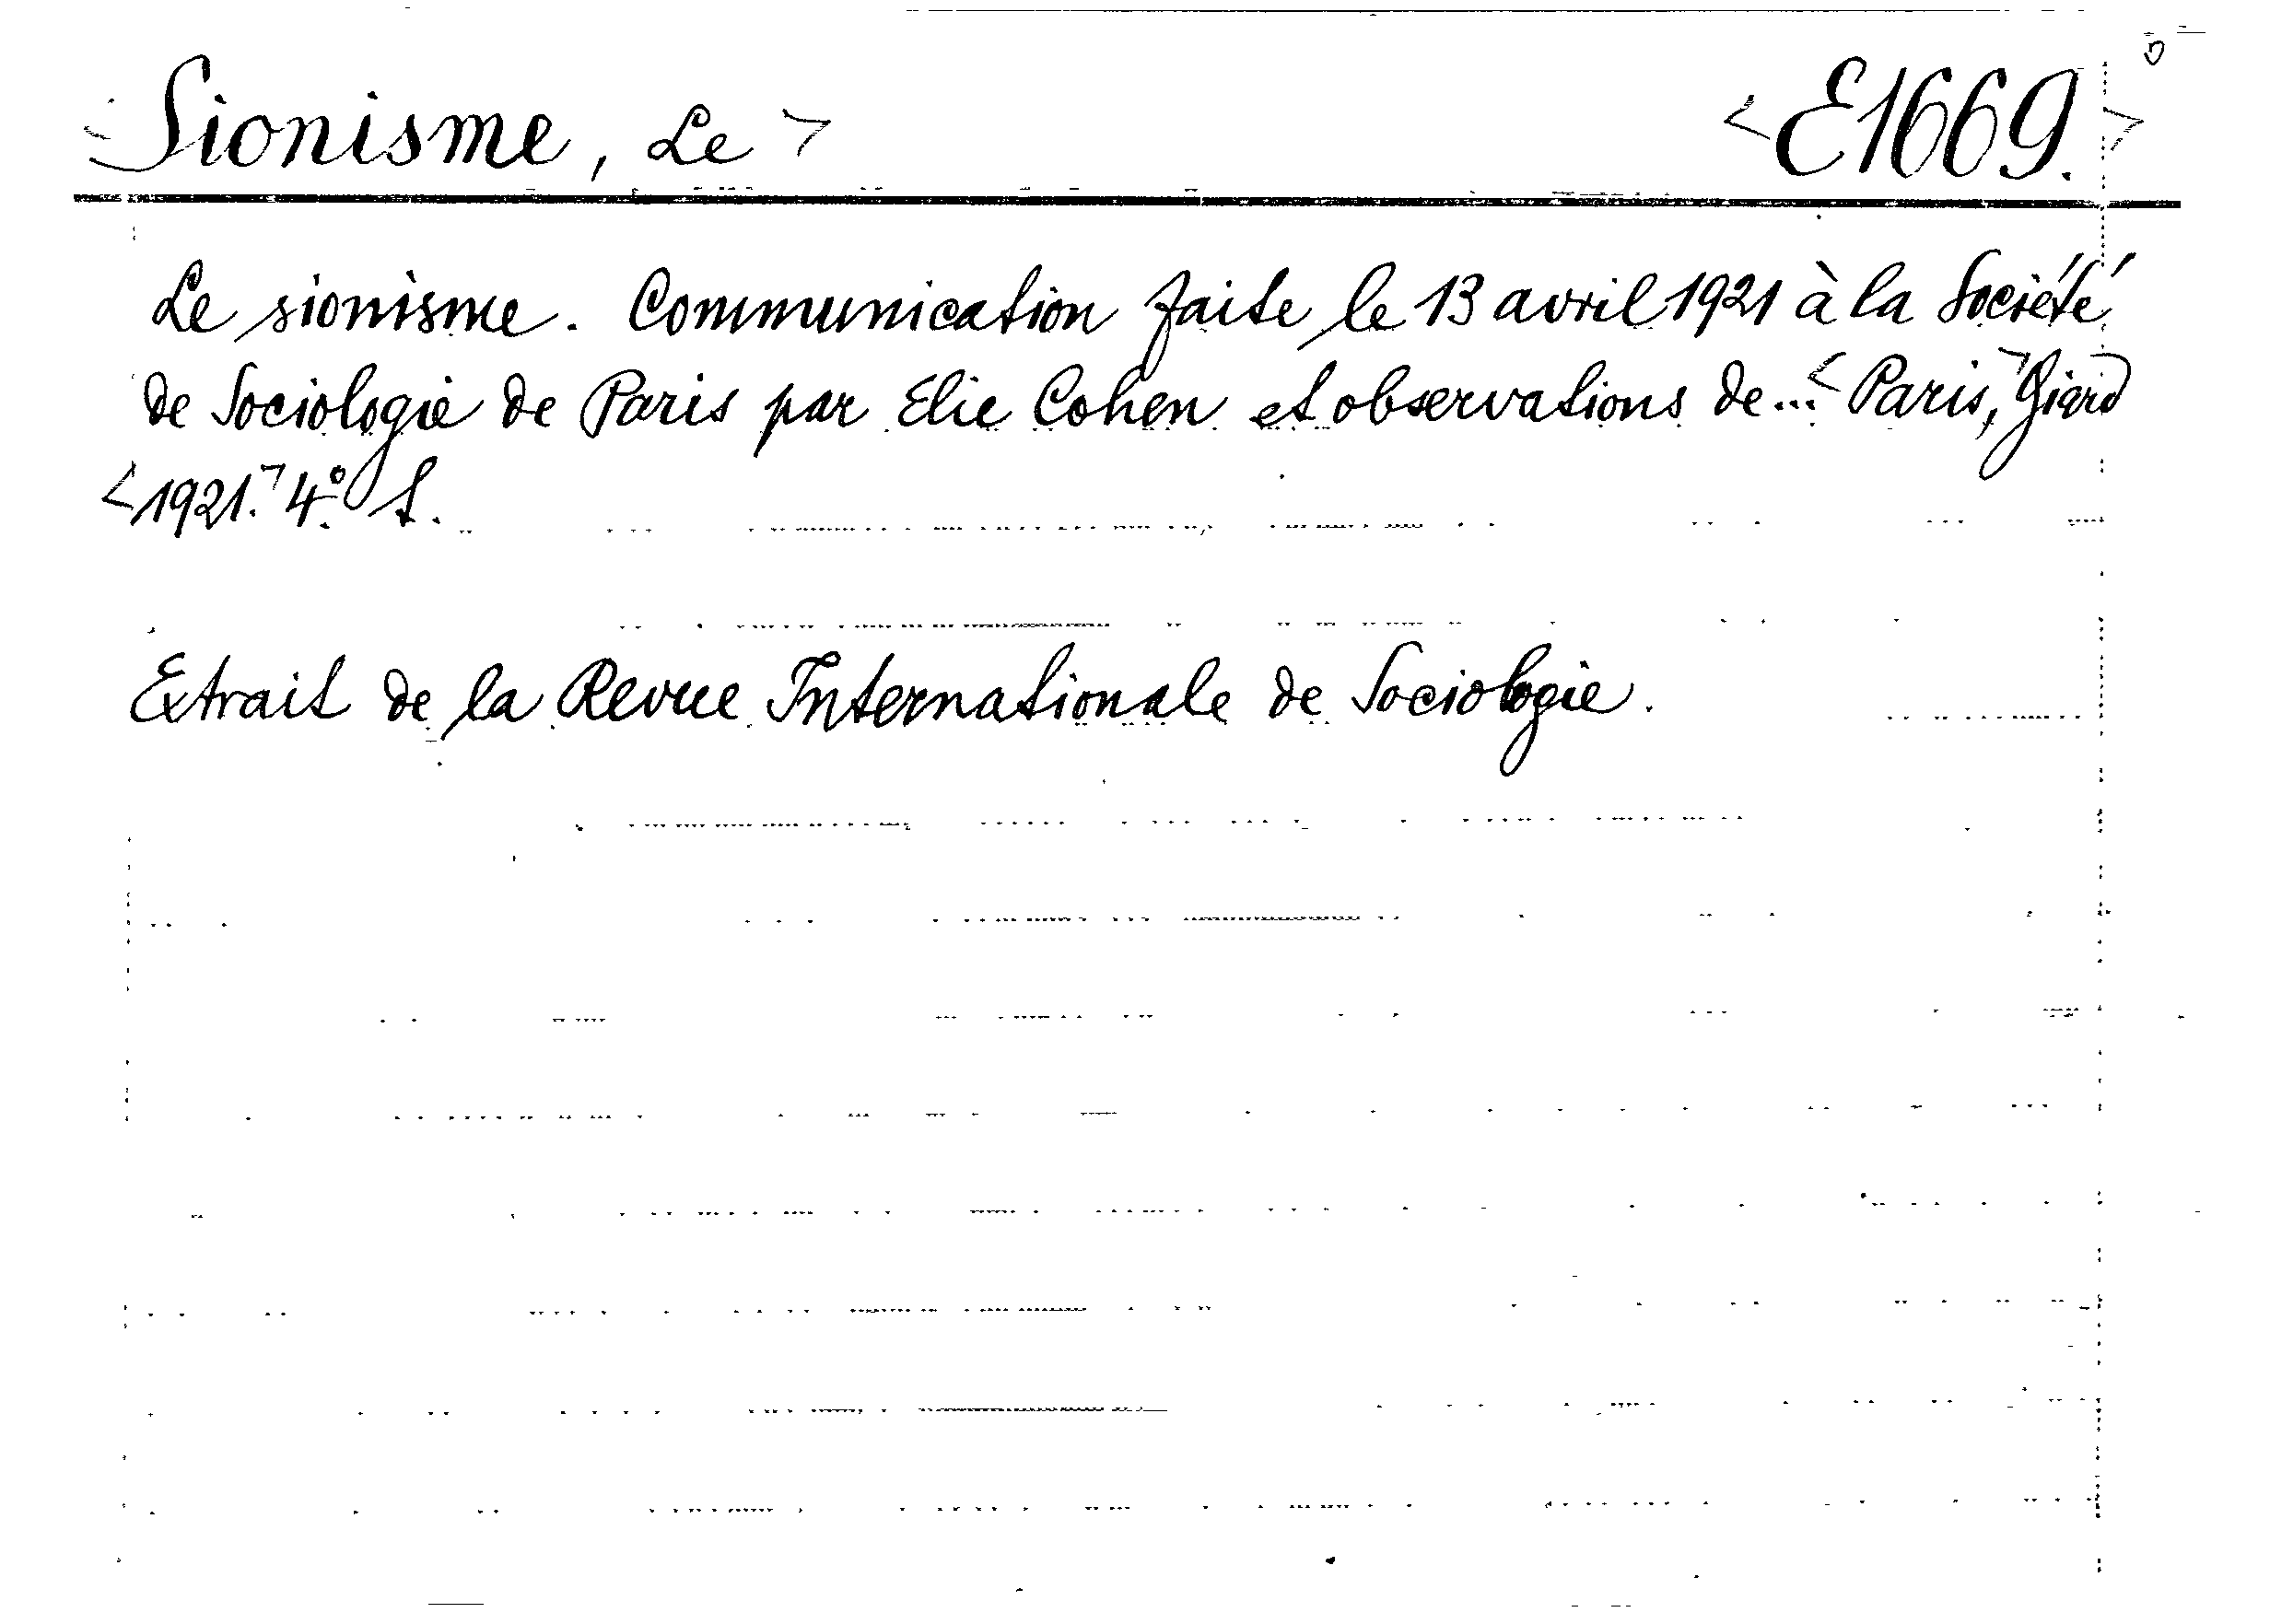 <Sionisme, Le> <E1669.>
Le sionisme. Communication faite le 13 avril 1921 à la Société
de Sociologie de Paris par Elie Cohen et observations de... <Paris,> Giard
<1921.> 4º. S.
Extrait de la Revue Internationale de Sociologie.